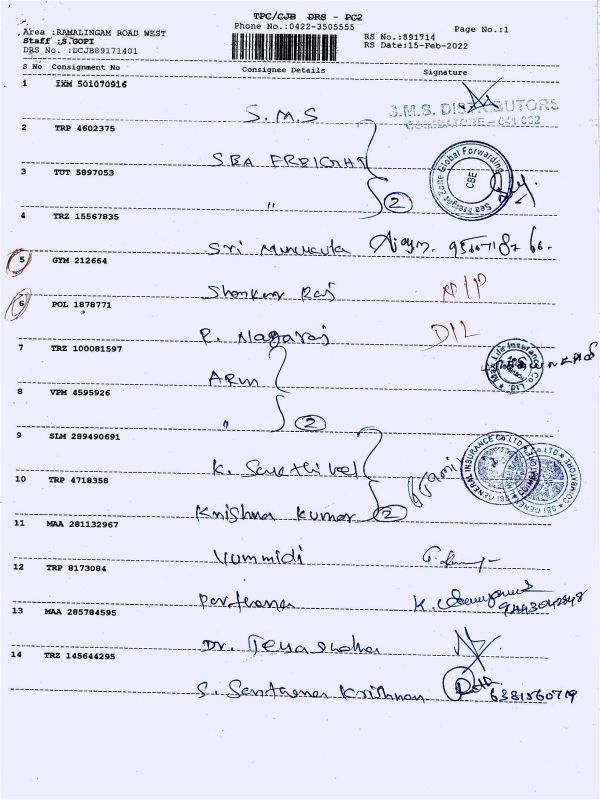 TPC/CJB DRS - PC2
Phone No.:0422-3505555
Page No.:1
Area :RAMALINGAM ROAD WEST
Staff :S.GOPI
DRS No. :DCJB89171401
RS No.:891714
RS Date:15-Feb-2022
S No Consignment No Consignee Details Signature
1 IXM 501070916
S.M.S
S.M.S. DISTRIBUTORS
COIMBATORE - 641 002
2 TRP 4602375
SEA FREIGHT
Sea Freight Zone Global Forwarding
CBE
3 TUT 5897053
" 2
4 TRZ 15567835
Sri
5 GYM 212664
Shankar Raj
N/P
6 POL 1878771
P. Nagaraj
D/L
7 TRZ 100081597
Arun
Max Life Insurance Co. Ltd.
8 VPM 4595926
" 2
9 SLM 289490691
K. Sakthivel
SBI GENERAL INSURANCE Co. LTD
COIMBATORE
10 TRP 4718358
Krishna Kumar 2
11 MAA 281132967
Vummidi
12 TRP 8173084
13 MAA 285784595
Dr.
14 TRZ 145644295
S. Santhana Krishnan
6381560719